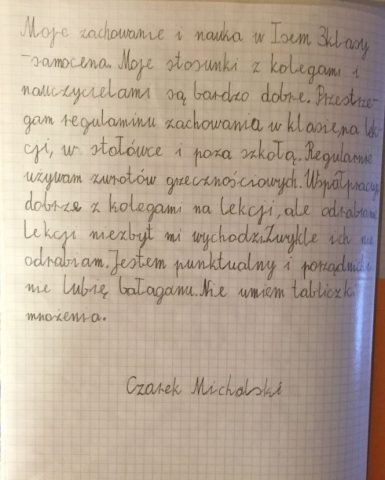 Moje zachowanie i nauka w I sem 3 klasy
-samocena. Moje stosunki z kolegami i
nauczycielami są bardzo dobre. Przestrze-
gam regulaminu zachowania w klasie, na lek-
cji, w stołówce i poza szkołą. Regularnie
używam zwrotów grzecznościowych. Współpracuję
dobrze z kolegami na lekcji, ale odrabianie
lekcji niezbyt mi wychodzi. Zwykle ich nie
odrabiam. Jestem punktualny i porządnicki
nie lubię bałaganu. Nie umiem tabliczki
mnożenia.
Czarek Michalski